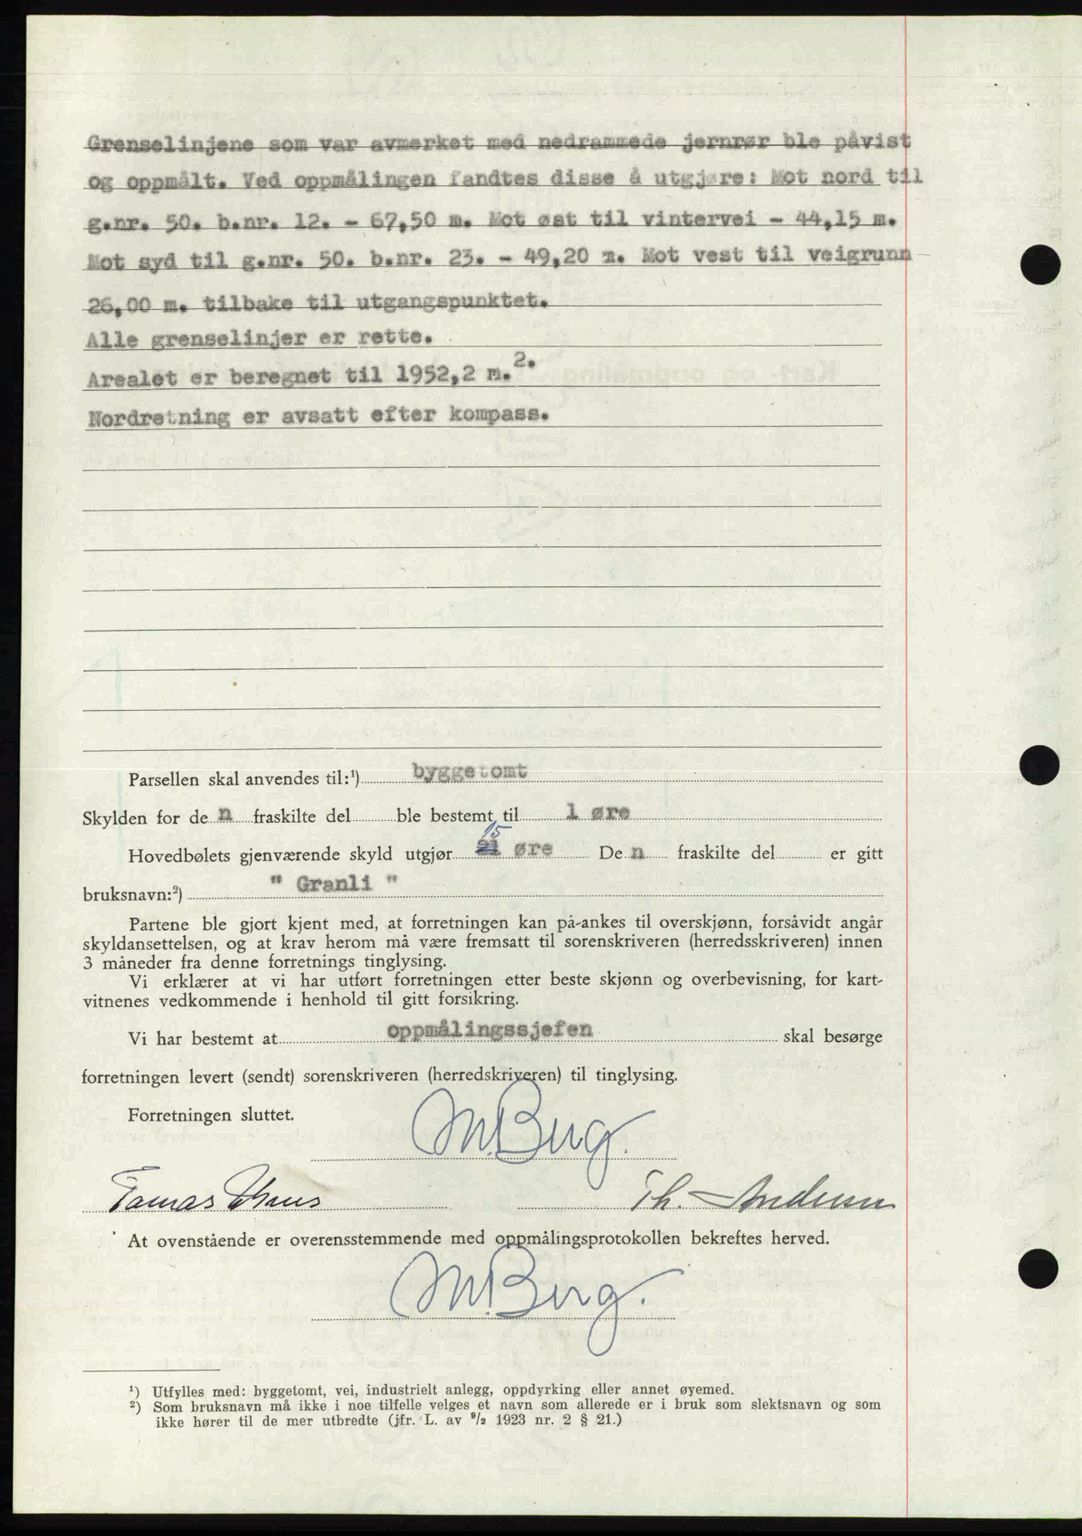 Grenselinjene som var avmerket med nedrammede jernrør ble påvist
og oppmålt. Ved oppmålingen fandtes disse å utgjøre: Mot nord til
g.nr. 50. b.nr. 12. - 67,50 m. Mot øst til vintervei - 44,15 m.
Mot syd til g.nr. 50. b.nr. 23. - 49,20 m. Mot vest til veigrunn
26,00 m. tilbake til utgangspunktet.
Alle grenselinjer er rette.
Arealet er beregnet til 1952,2 m.2.
Nordretning er avsatt efter kompass.
Parsellen skal anvendes til:¹) byggetomt
Skylden for de n fraskilte del ble bestemt til 1 øre
15
Hovedbølets gjenværende skyld utgjør 21 øre De n fraskilte del er gitt
bruksnavn:²) " Granli "
Partene ble gjort kjent med, at forretningen kan på-ankes til overskjønn, forsåvidt angår
skyldansettelsen, og at krav herom må være fremsatt til sorenskriveren (herredsskriveren) innen
3 måneder fra denne forretnings tinglysing.
Vi erklærer at vi har utført forretningen etter beste skjønn og overbevisning, for kart-
vitnenes vedkommende i henhold til gitt forsikring.
Vi har bestemt at oppmålingssjefen skal besørge
forretningen levert (sendt) sorenskriveren (herredskriveren) til tinglysing.
Forretningen sluttet.
M. Berg.
Tomas Th. Andersen
At ovenstående er overensstemmende med oppmålingsprotokollen bekreftes herved.
M. Berg.
¹) Utfylles med: byggetomt, vei, industrielt anlegg, oppdyrking eller annet øyemed.
²) Som bruksnavn må ikke i noe tilfelle velges et navn som allerede er i bruk som slektsnavn og som
ikke hører til de mer utbredte (jfr. L. av 9/2 1923 nr. 2 § 21.)